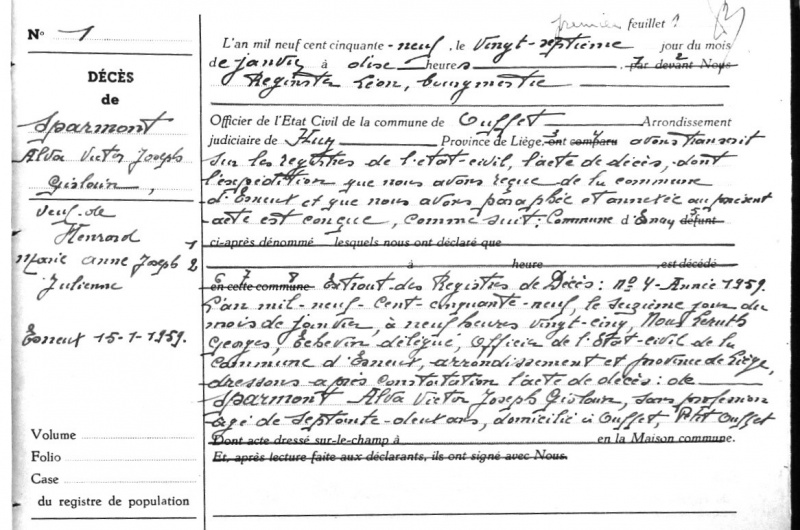 premier feuillet ?
N° 1
DÉCÈS
de
Sparmont
Alva Victor Joseph
Gislain,
veuf de
Henrard 1
Marie Anne Joseph 2
Julienne
Esneux 15-1-1959.
Volume
Folio
Case
du registre de population
L'an mil neuf cent cinquante-neuf, le vingt-septième jour du mois
de janvier à onze heures 7 par devant 2 Nous
Reginster Léon, bourgmestre
Officier de l'Etat Civil de la commune de Ouffet Arrondissement
judiciaire de Huy Province de Liège, 3 ont 4 comparu avons transcrit
sur les registres de l'état-civil, l'acte de décès, dont
l'expédition que nous avons reçue de la commune
d'Esneux et que nous avons paraphée et annexée au présent
acte est conçue, comme suit: Commune d' 5 défunt
ci-après dénommé lesquels nous ont déclaré que
à heure est décédé
6 7 8
en cette commune Extrait des Registres de Décès: n° 4 - Année 1959.
L'an mil-neuf-cent cinquante-neuf, le seizième jour du
mois de janvier, à neuf heures vingt-cinq, Nous
Georges, Echevin délégué, Officier de l'Etat-civil de la
commune d'Esneux, arrondissement et province de Liège,
dressons après constatation l'acte de décès: de
Sparmont Alva Victor Joseph Gislain, sans profession
agé de septante-deux ans, domicilié à Ouffet, Petit Ouffet
Dont acte dressé sur-le-champ à en la Maison commune.
Et, après lecture faite aux déclarants, ils ont signé avec Nous.